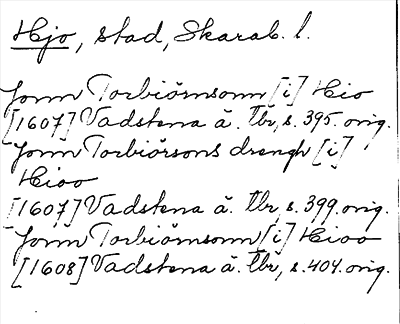 Hjo, stad, Skarab. l.
Jonn Torbiörnsonn [i] Hio
[1607] Vadstena ä. Tbr, s. 395. orig.
Jonn Torbiörsons drengh [i]
Hioo
[1607] Vadstena ä. Tbr, s. 399. orig.
Jonn Torbiörnsonn [i] Hioo
[1608] Vadstena ä. Tbr, s. 404. orig.